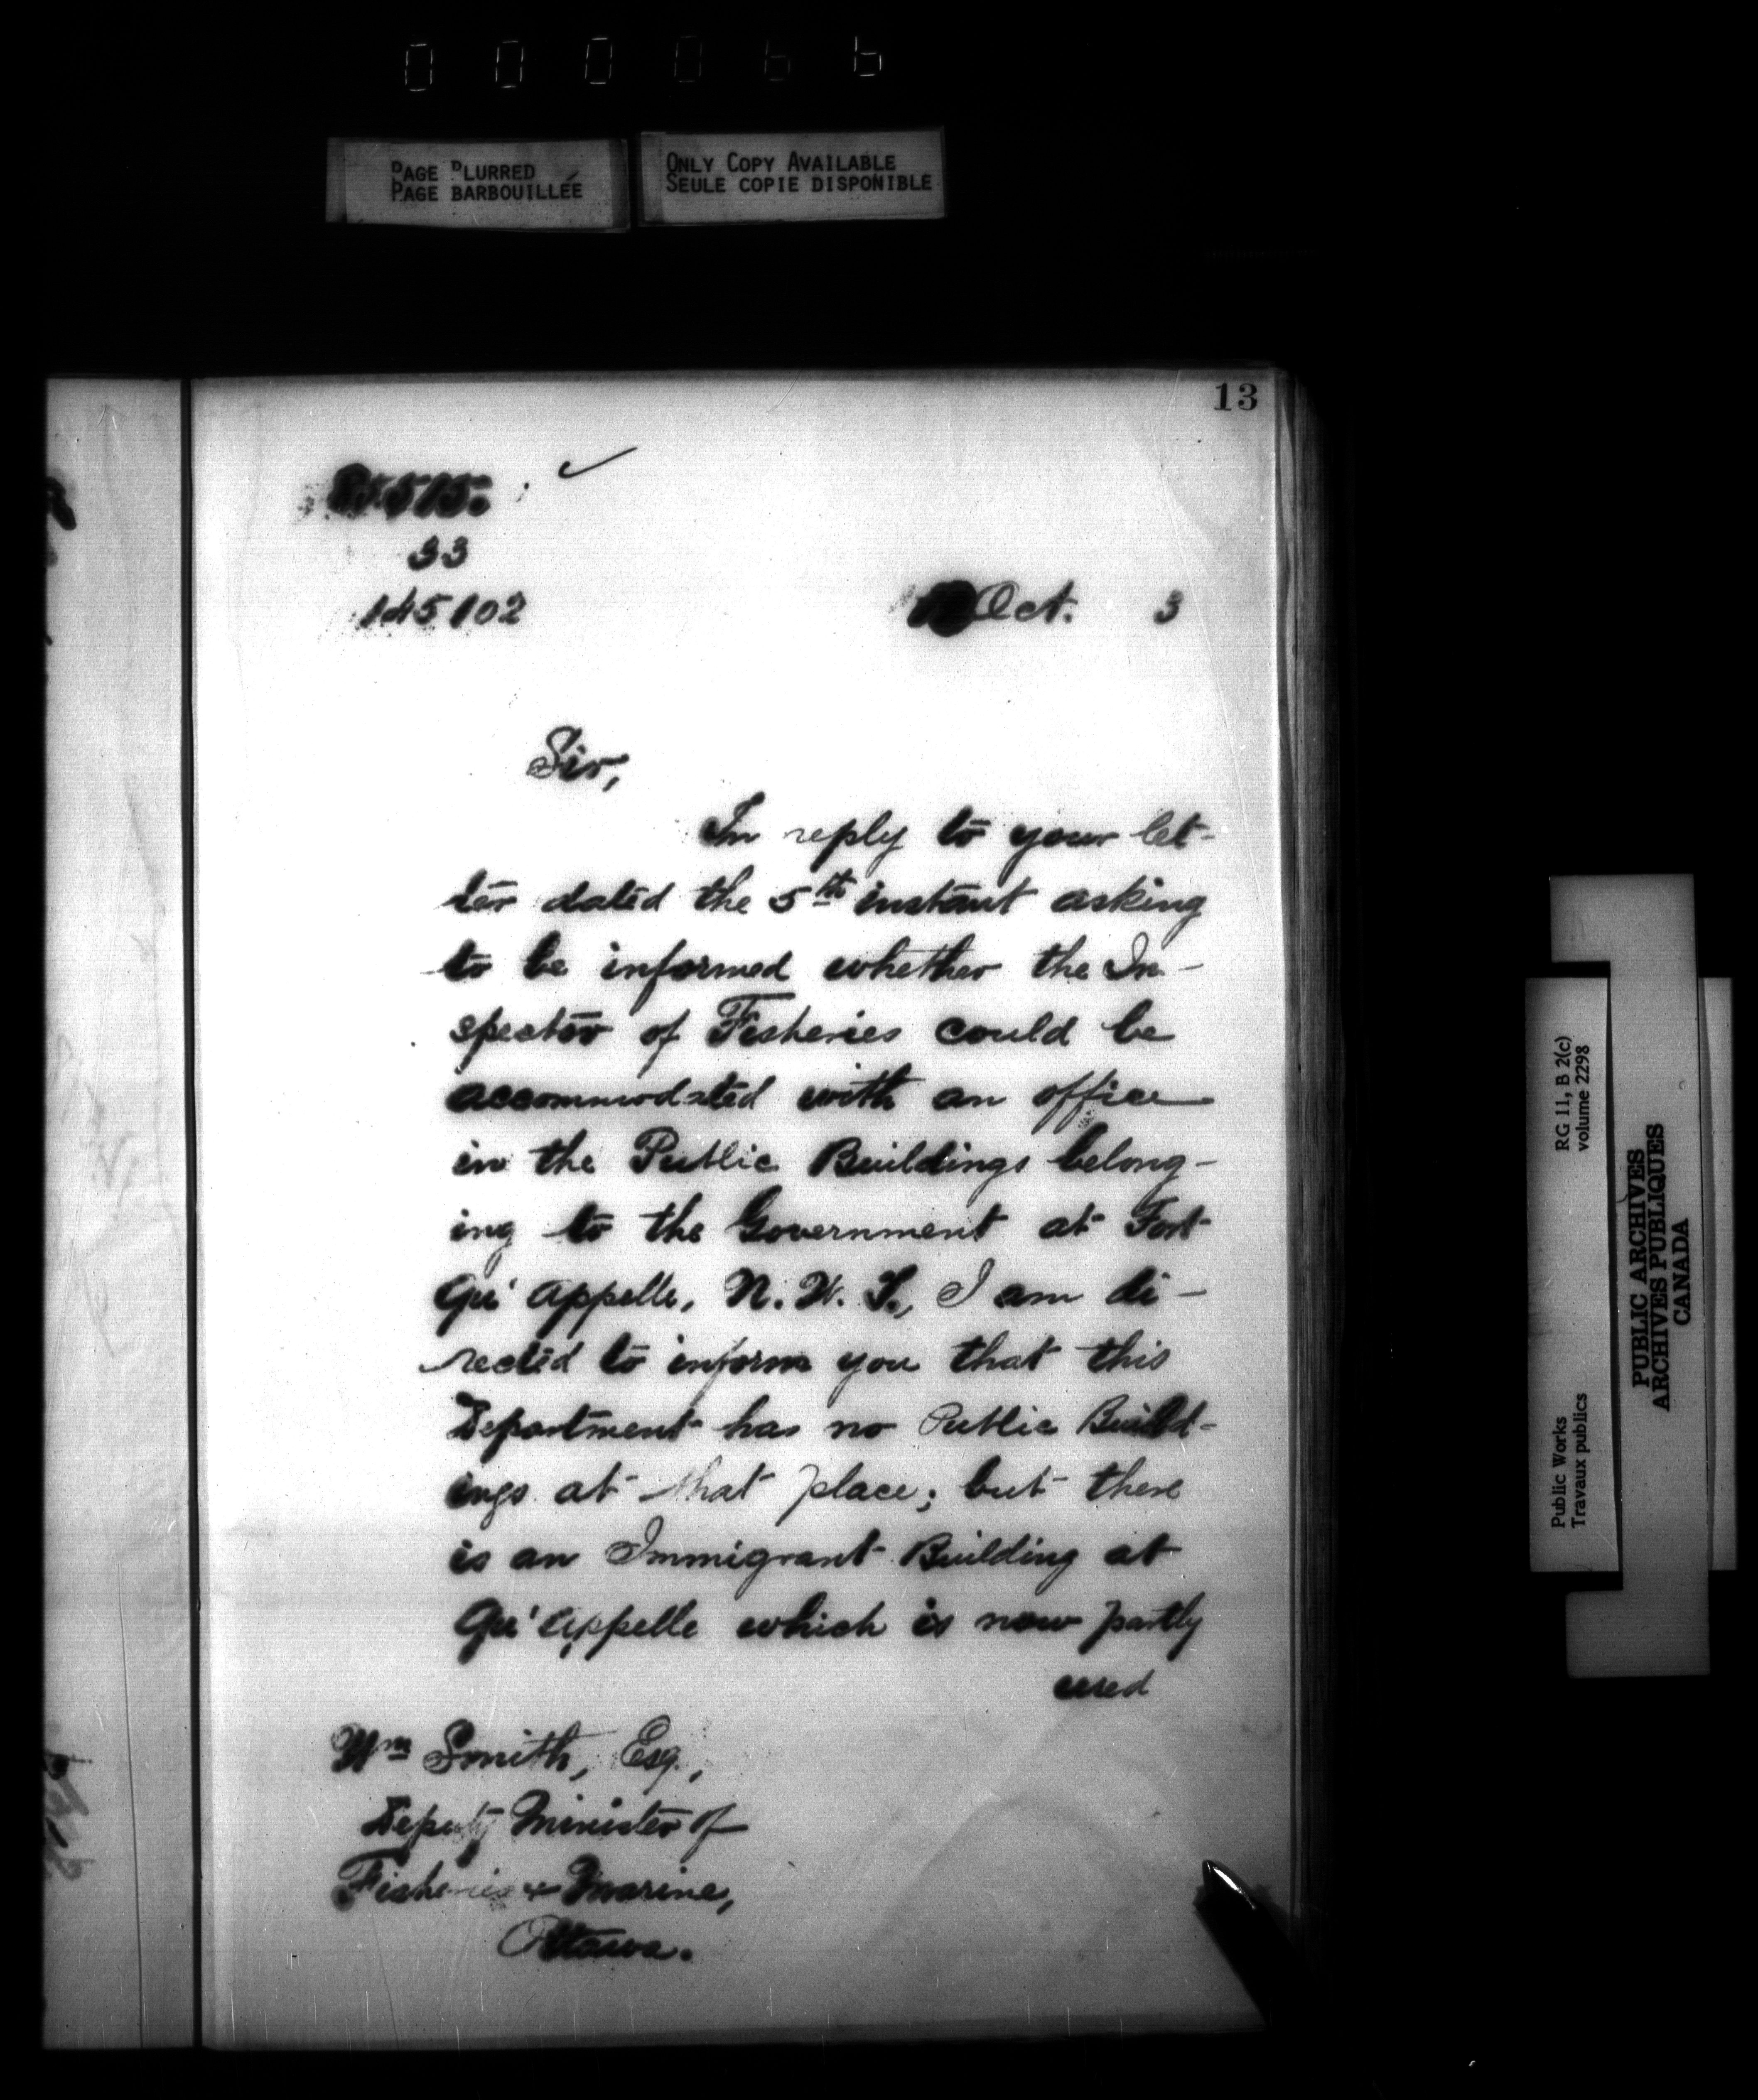 000066
PAGE BLURRED
PAGE BARBOUILLÉE
ONLY COPY AVAILABLE
SEULE COPIE DISPONIBLE
13
33
145102
Oct. 3
Sir,
In reply to your let-
ter dated the 5th instant asking
to be informed whether the In-
spector of Fisheries could be
accommodated with an office
in the Public Buildings belong-
ing to the Government at Fort
Qu'Appelle, N.W.T., I am di-
rected to inform you that this
Department has no Public Build-
ings at that place; but there
is an Immigrant Building at
Qu'Appelle which is now partly
used
Wm Smith, Esq.,
Deputy Minister of
Fisheries & Marine,
Ottawa.
Public Works
Travaux publics
RG 11, B 2(c)
volume 2298
PUBLIC ARCHIVES
ARCHIVES PUBLIQUES
CANADA